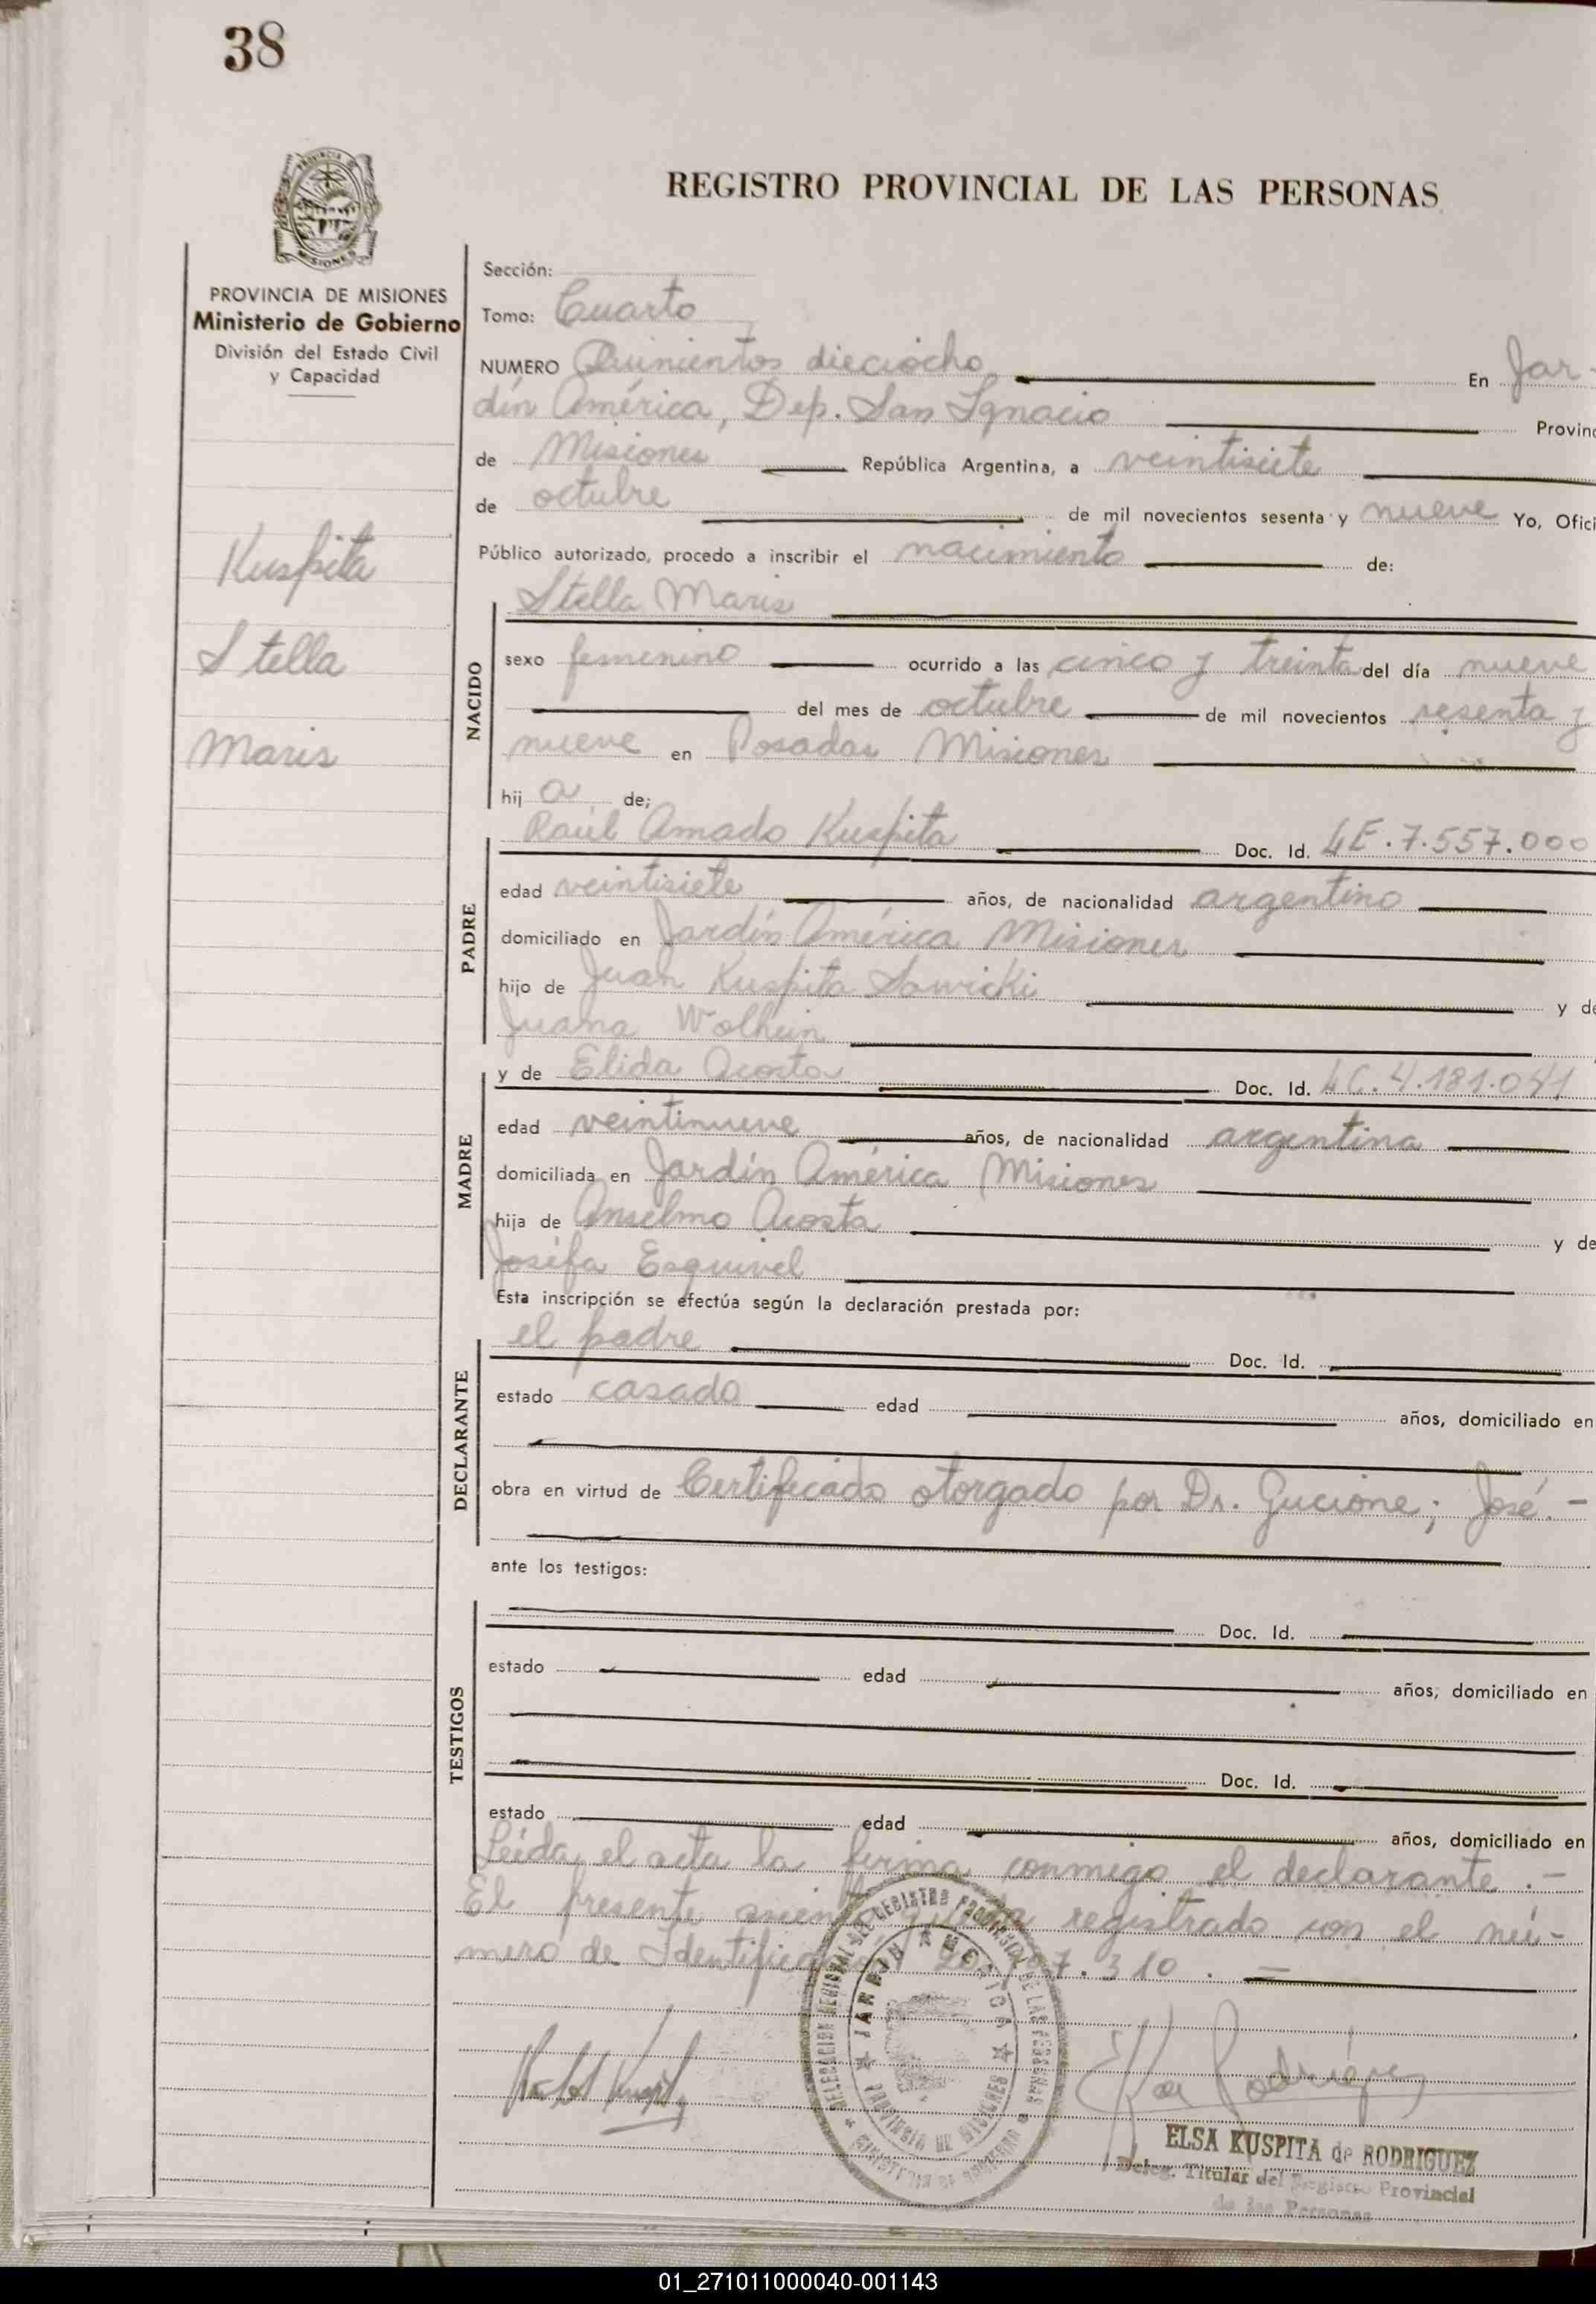 38
REGISTRO PROVINCIAL DE LAS PERSONAS
PROVINCIA DE MISIONES
Ministerio de Gobierno
División del Estado Civil
y Capacidad
Kuspita
Stella
Maris
Sección:
Tomo: Cuarto
NUMERO Quinientos dieciocho En Jar-
dín América, Dep. San Ignacio Provinc
de Misiones República Argentina, a veintisiete
de octubre de mil novecientos sesenta y nueve Yo, Ofici
Público autorizado, procedo a inscribir el nacimiento de:
NACIDO
Stella Maris
sexo femenino ocurrido a las cinco y treinta del día nueve
del mes de octubre de mil novecientos sesenta y
nueve en Posadas Misiones
hij a de;
PADRE
Raúl Amado Kuspita Doc. Id. LE.7.557.000
edad veintisiete años, de nacionalidad argentino
domiciliado en Jardín América Misiones
hijo de Juan Kuspita Sawicki y de
Juana Wolhein
MADRE
y de Elida Acosta Doc. Id. LC.4.181.041
edad veintinueve años, de nacionalidad argentina
domiciliada en Jardín América Misiones
hija de Anselmo Acosta y de
Joséfa Esquivel
Esta inscripción se efectúa según la declaración prestada por:
DECLARANTE
el padre Doc. Id.
estado casado edad años, domiciliado en
obra en virtud de Certificado otorgado por Dr. Gucione; José.-
ante los testigos:
TESTIGOS
Doc. Id.
estado edad años, domiciliado en
Doc. Id.
estado edad años, domiciliado en
Leída el acta la firma conmigo el declarante.-
El presente asiento registrado con el nú-
mero de Identificación 310.-
DELEGACION REGIONAL DEL REGISTRO PROVINCIAL DE LAS PERSONAS
MINISTERIO DE GOBIERNO
JARDIN AMERICA
PROVINCIA DE MISIONES
Elsa K de Rodríguez
ELSA KUSPITA de RODRIGUEZ
Deleg. Titular del Registro Provincial
de las Personas
01_271011000040-001143